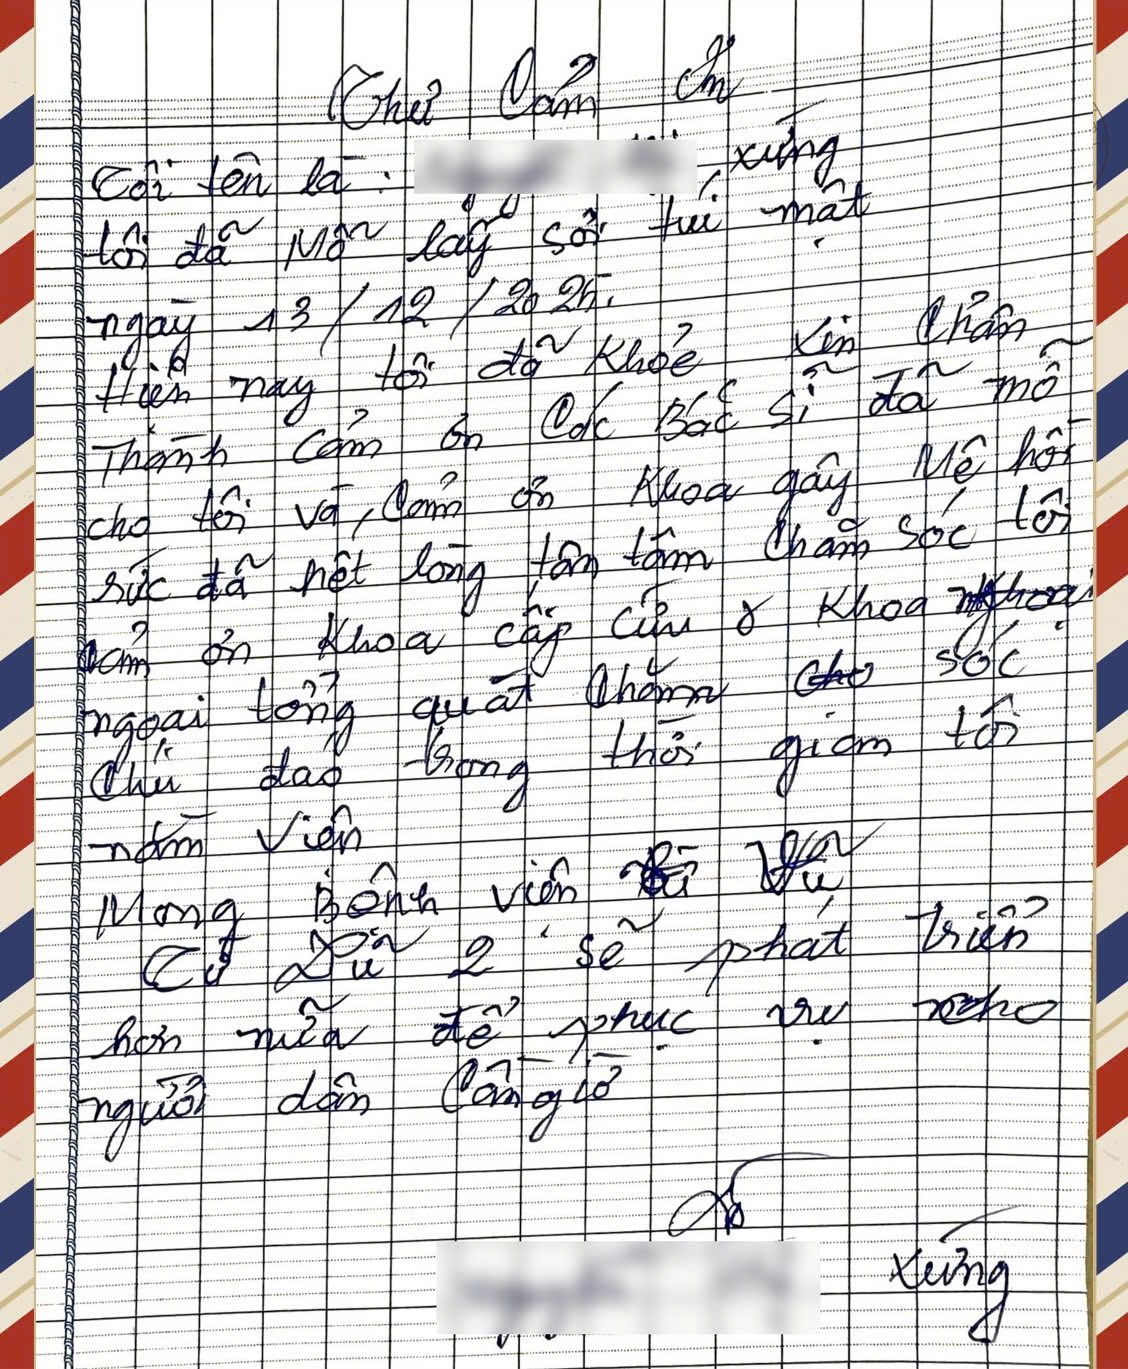 Thư Cảm Ơn
Tôi tên là: xứng
tôi đã Mỗ lấy sỏi túi mật
ngày 13/12/2025.
Hiện nay tôi đã khỏe xin Chân
Thành Cảm ơn Các Bác sĩ đã mỗ
cho tôi và, Cảm ơn Khoa gây Mê hồi
sức đã hết lòng tận tâm Chăm sóc tôi
cảm ơn Khoa cấp cứu ở Khoa
ngoại tổng quát Chăm sóc
Chu đáo trong thời gian tôi
nằm viện
Mong Bệnh viện
Từ Dũ 2 sẽ phát triển
hơn nữa để phục vụ cho
người dân Cần giờ
Xứng